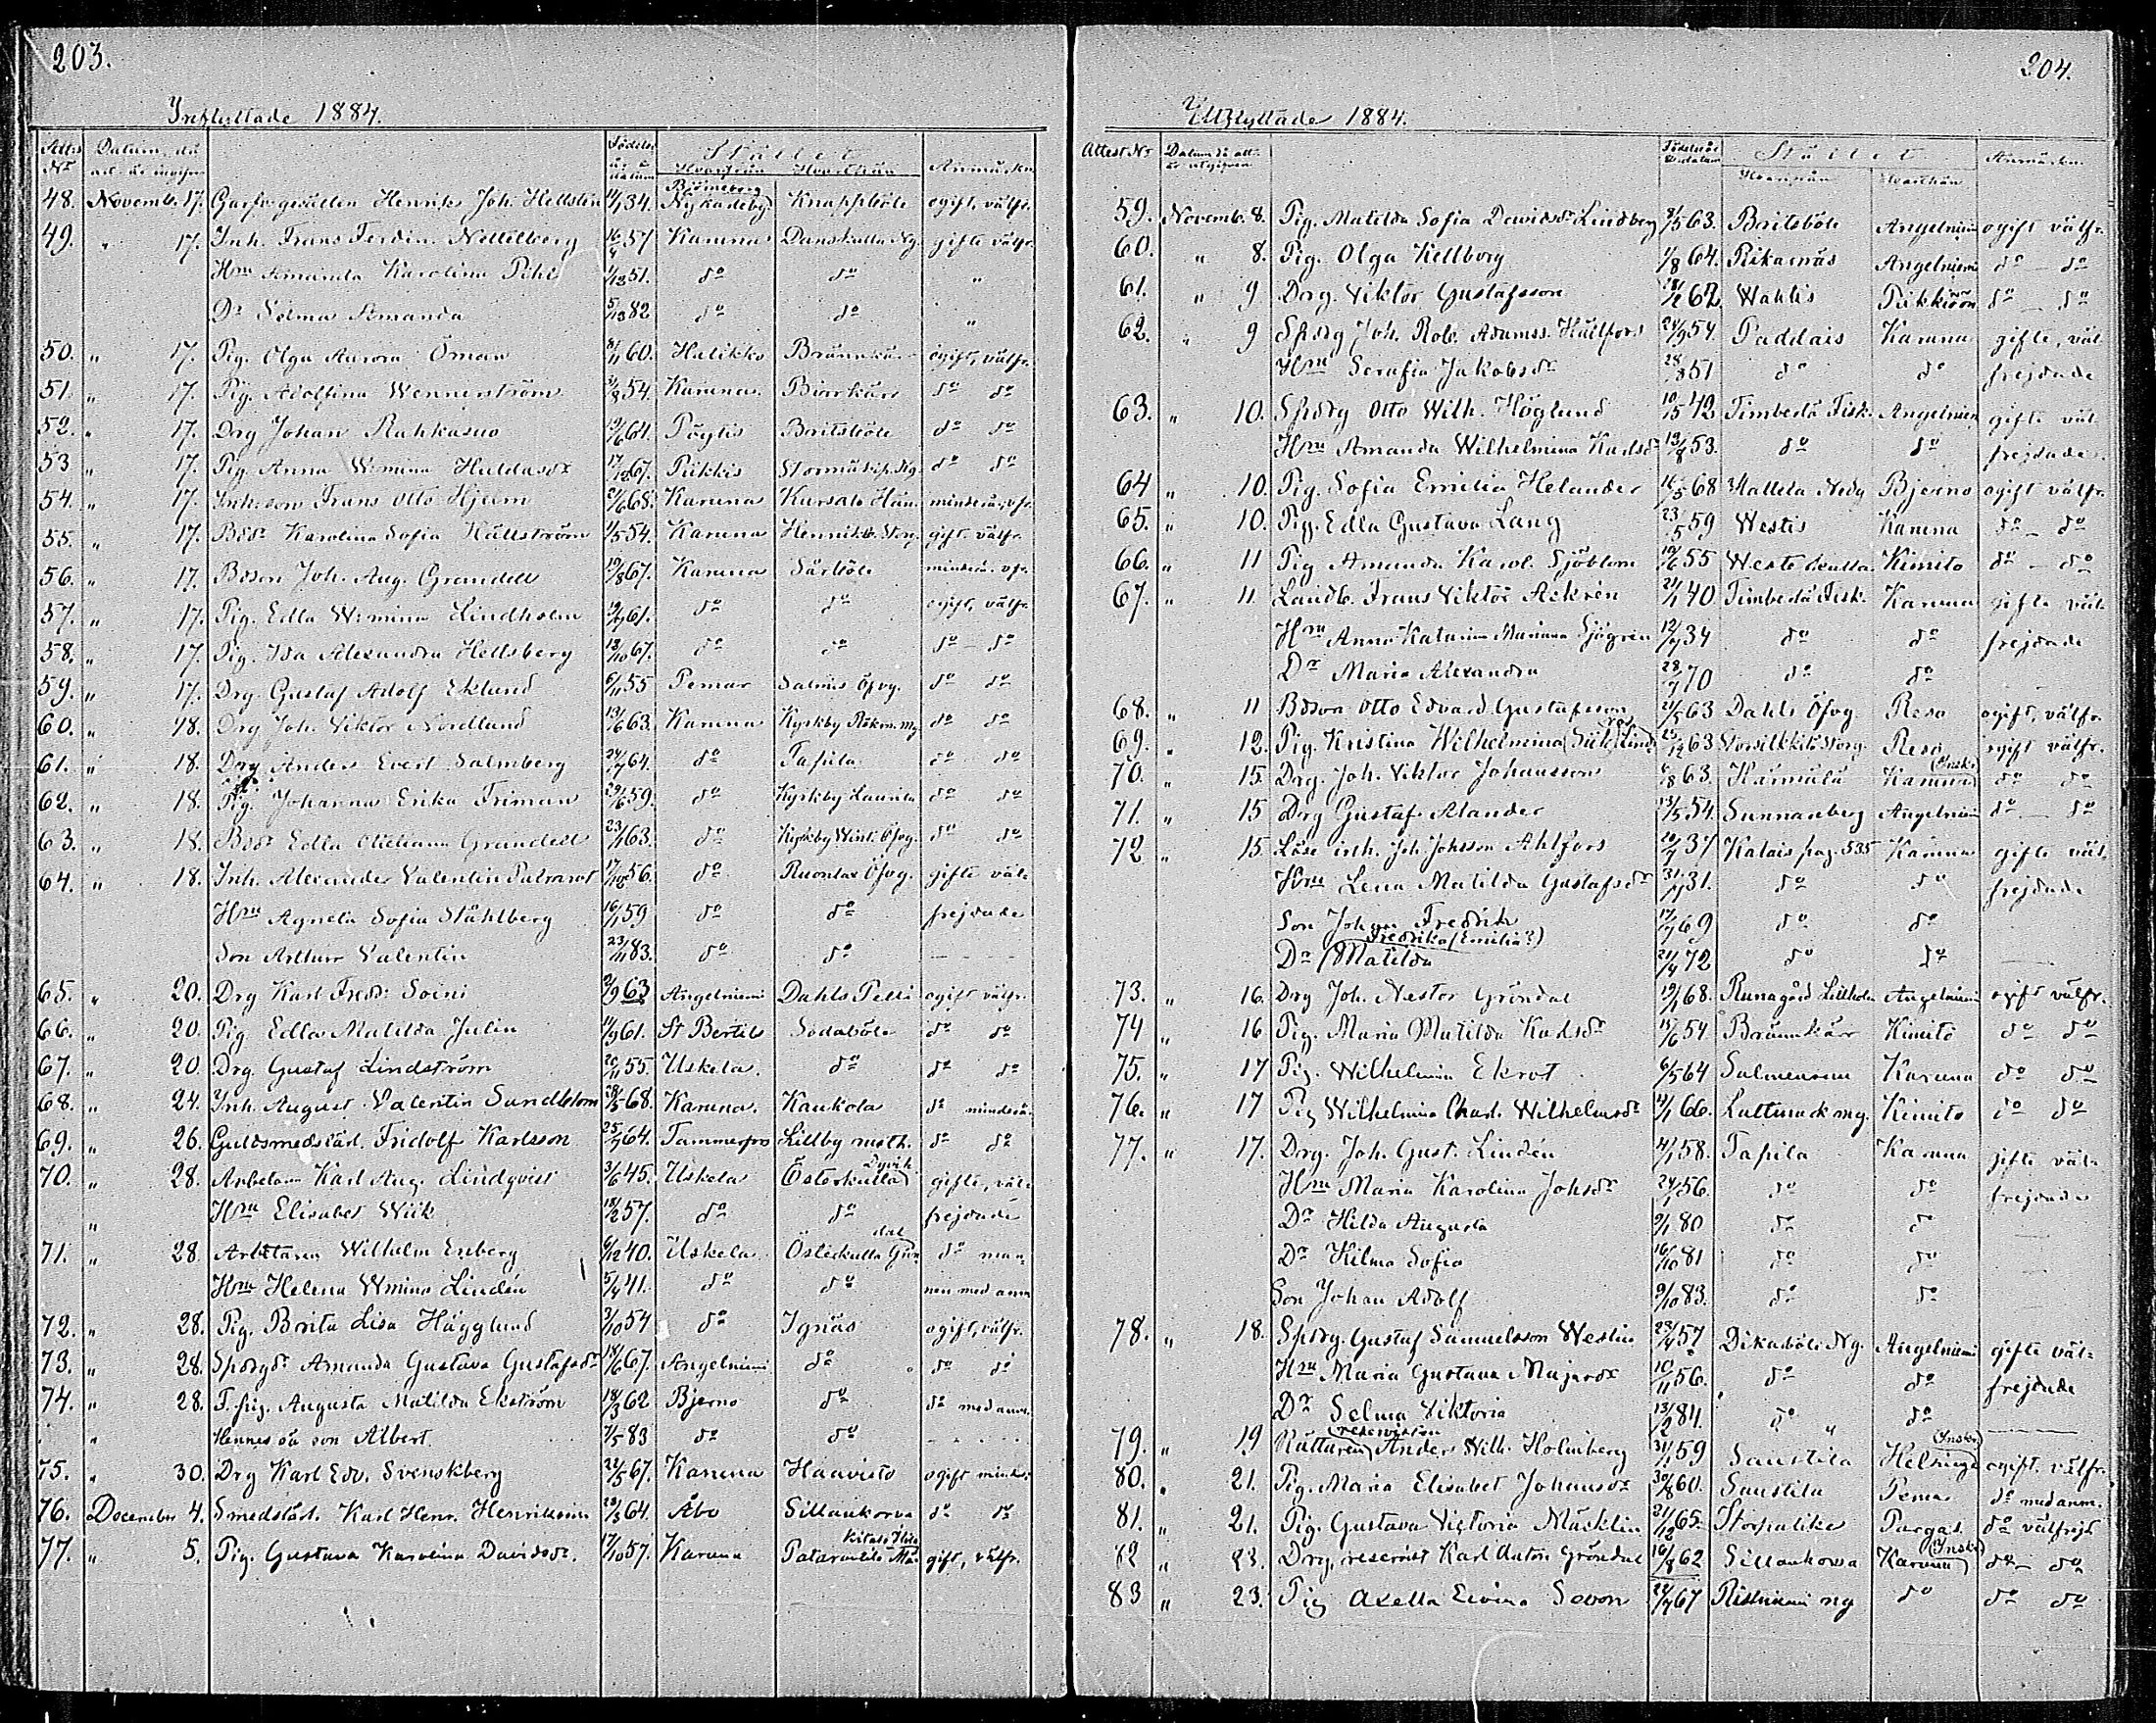 203.
Inflyttade 1884.
Attes No Datum, då att. är ingifven Födelse år o datum Stället Hvarifrån Hvarthän Anmärkn.
48. Novemb. 17. Garfv.gesällen Henrik Joh. Hellstén 34. Björneborg Nykarleby Knappböle ogift, välfr.
49. „ 17. Inh. Frans Ferdin. Nettelberg 16/4 57 Karuna Danskulla Ng. gifte välfr.
Hru Amanda Karolina Pihl 1/12 51. do do „
Dr Selma Amanda 5/12 82 do do „
50. „ 17. Pig. Olga Aurora Öman 60. Halikko Brännkär ogift, välfr.
51. „ 17. Pig. Adolfina Wennerström 54. Karuna Björkkärr do do
52. „ 17. Drg Johan Ruhkasuo 64. Pöytis Britsböle do do
53 „ 17. Pig. Anna W:mina Huldasdr 17/12 67. Piikkis do do
54. „ 17. Inh:son Frans Otto Hjelm 21/6 68. Karuna Kursals minderår. vfr.
55. „ 17. Bdr Karolina Sofia Källström 1/5 54. Karuna Henriksb. Storg. gift. välfr.
56. „ 17. Bdson Joh. Aug. Grandell 19/8 67. Karuna Särböle minderå. vfr.
57. „ 17. Pig. Edla W:mina Lindholm 61. do do ogift, välfr.
58. „ 17. Pig. Ida Alexandra Hellsberg 18/10 67. do do do – do
59. „ 17. Drg. Gustaf Adolf Eklund 6/11 55 Pemar Salmis Öfvg. do do
60. „ 18. Drg Joh. Viktor Nordlund 13/6 63. Karuna Kyrkby do do
61. „ 18. Drg Anders Evert Salmberg 24/7 64. do Tapila do do
62. „ 18. Pig. Johanna Erika Friman 29/6 59. do Kyrkby Laurila do do
63. „ 18. Bdr Edla Grandell 23/1 63. do Kyrkby Öfvg. do do
64. „ 18. Inh. Alexander Valentin 17/12 56. do Ruonlax Öfvg. gifte väl-
Hru Agneta Sofia Ståhlberg 16/1 59 do do frejdade
Son Arthur Valentin 23/11 83. do do - - - -
65. „ 20. Drg Karl Fredr. Soini 2/9 63 Angelniemi Dahls Pellä ogift välfr.
66. „ 20. Pig Edla Matilda Julin 11/9 61. St Bertils Sådaböle do do
67. „ 20. Drg. Gustaf Lindström 20/11 55. Uskela. do do do
68. „ 24. Inh. August Valentin Sundblom 28/5 68. Karuna. Kaukola do minderå.
69. „ 26. Guldsmedslärl. Fridolf Karlsson 25/7 64. Tammerfors Lillby do do
70. „ 28. Arbetaren Karl Aug. Lindqvist 3/6 45. Uskela Österkulla Dyvik gifte, väl-
„ Hru Elisabet Wiik 18/2 57. do do frejdade
71. „ 28. Arbetaren Wilhelm Enberg 6/12 40. Uskela Österkulla Grön dal do man-
Hru Helena Wmina Lindén 5/4 41. do do nen med anm
72. „ 28. Pig. Brita Lisa Hägglund 3/10 54 do Ignäs ogift, välfr.
73. „ 28. Spdrgdr Amanda Gustava Gustafsdr 18/6 67. Angelniemi do do do
74. „ 28. F. pig. Augusta Matilda Ekström 18/3 62 Bjerno do do med anm.
„ Hennes oä son Albert. 7/5 83 do do - - - -
75. „ 30. Drg Karl Edv. Svenskberg 22/5 67. Karuna Haavisto ogift minder.
76. December 4. Smedslärl. Karl Henr. Henriksson 28/3 64. Åbo Sillankorva do do
77. „ 5. Pig. Gustava Karolina Davidsdr. 17/10 57. Karuna gift, välfr.
204.
Utflyttade 1884.
Attest No Datum då att. är utgifven Födelseår o. datum Stället Hvarifrån Hvarthän Anmärkn.
59. Novemb. 8. Pig. Matilda Sofia Davidsdr Lindberg 63. Britsböle Angelniemi ogift välfr.
60. „ 8. Pig. Olga Kellborg 1/8 64. Pikarnäs Angelniemi do – do
61. „ 9 Drg. Viktor Gustafsson 62 Wahlis Piikkis do – do
62. „ 9 Spdrg Joh. Rob. Adamss. Hällfors 24/9 54 Paddais Karuna gifte, väl-
Hru Serafia Jakobsdr 28/8 51 do do frejdade
63. „ 10. Spdrg Otto Wilh. Höglund 10/5 42 Timbesta Fisk. Angelniemi gifte väl-
Hru Amanda Wilhelmina Karlsdr 19/8 53. do do frejdade
64 „ 10. Pig. Sofia Emilia Helander 16/5 68 Mattela Nedg Bjerno ogift välfr.
65. „ 10. Pig. Edla Gustava Lang 23/5 59 Westis Karuna do – do
66. „ 11 Pig Amanda Karol. Sjöblom 55 Westerkulla Kimito do – do
67. „ 11 Landb. Frans Viktor Ackrén 21/1 40 Timbestä Fisk. Karuna gifte väl-
Hru Anna Katarina Mariana Sjögren 12/7 34 do do frejdade
Dr Maria Alexandra 28/7 70 do do
68. „ 11 Bdson Otto Edvard Gustafsson 21/5 63 Dahls Öfvg Reso ogift, välfr.
69. „ 12. Pig. Kristina Wilhelmina 25/12 63 Storg. Reso ogift välfr.
70. „ 15. Drg. Joh. Viktor Johansson 63. Kärmälä Karuna (Inskr do do
71. „ 15 Drg Gustaf Alander 13/5 54. Sunnanberg Angelniemi do – do
72 „ 15. Lösa inh. Joh Johsson Ahlfors 20/7 37 Kalais pag. 535 Karuna gifte väl-
Hru Lena Matilda Gustafsdr 31/7 31. do do frejdade
Son Johan Fredrik 17/7 69 do do
Fredrika (Emilia?)
Dr (Matilda 21/4 72 do do
73. „ 16. Drg Joh. Nestor Gröndal 19/1 68. Runagård Lillholm Angelniemi ogift välfr.
74 „ 16 Pig. Maria Matilda Karlsdr 15/6 54 Brännkärr Kimito do do
75. „ 17 Pig. Wilhelmina Ekrot 6/5 64 Salmensuu Karuna do do
76. „ 17 Pig Wilhelmina Charl. Wilhelmsdr 4/1 66. mg. Kimito do do
77. „ 17. Drg. Joh. Gust. Lindén 58. Tapila Karuna gifte väl-
Hru Maria Karolina Johsdr 24/1 56. do do frejdade
Dr Hilda Augusta 9/1 80 do do
Dr Hilma Sofia 16/10 81 do do
Son Johan Adolf 9/10 83. do do
78. „ 18. Spdrg. Gustaf Samuelsson Westin 28/4 57 Dikarböle Ng. Angelniemi gifte väl-
Hru Maria Gustava Majasdr 10/11 56. do do frejdade
Dr Selma Viktoria 13/2 84. do do
79. „ 19 Ruttaren (reservisten) Anders Wilh. Holmberg 31/1 59 Saustila Helsinge (Inskr) ogift. välfr.
80. „ 21. Pig. Maria Elisabet Johansdr 30/8 60. Saustila Pemar do med anm.
81. „ 21. Pig. Gustava Victoria Mäcklin 21/12 65. Storpalike Pargas. do välfrejd
82 „ 23. Drg, reservist Karl Anton Gröndal 16/8 62 Sillankorva Karuna (Inskr) do – do
83 „ 23. Pig Axella Eivira Sevon 22/7 67 Ristniemi ng do do do